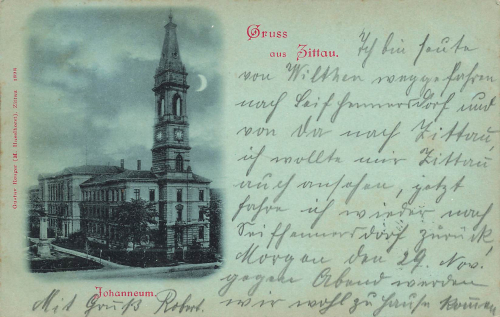 Gruss
aus Zittau.
Ich bin heute
von Wilthen weggefahren
nach Seifhennersdorf und
von da nach Zittau,
ich wollte mir Zittau
auch ansehen, jetzt
fahre ich wieder nach
Seifhennersdorf zurück,
Morgen den 29. Nov.
gegen Abend werden
wir wohl zu Hause kommen
Johanneum.
Mit Gruß Robert.
Zittau